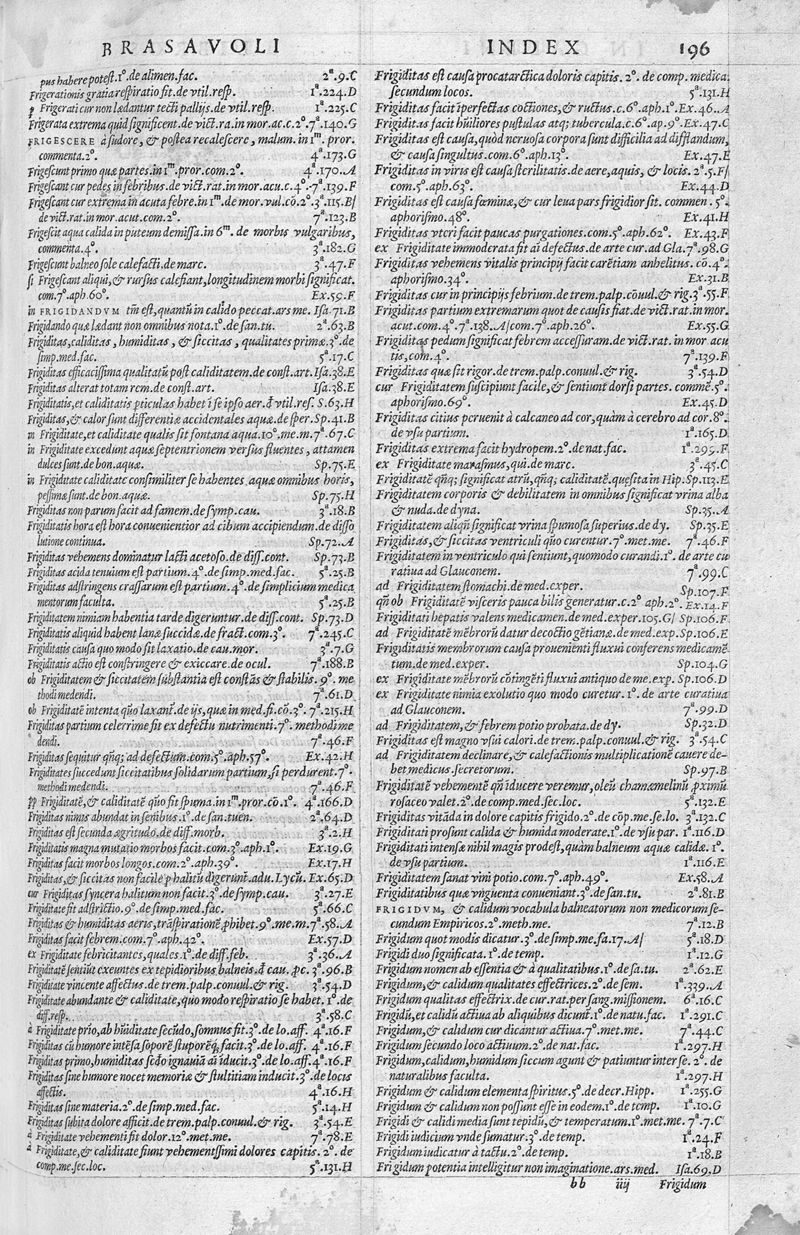 BRASAVOLI
INDEX 196
pus habere potest.1º.de alimen.fac. 2ª.9.C
Frigerationis gratia respiratio fit.de vtil.resp. 1ª.224.D
Frigerati cur non lædantur tecti pallijs.de vtil.resp. 1ª.225.C
Frigerata extrema quid significent.de vict.ra.in mor.ac.c.2º.7ª.140.G
FRIGESCERE à sudore, & postea recalescere, malum.in 1ᵐ. pror.
commenta.2º. 4ª.173.G
Frigescunt primo quæ partes.in 1ᵐ.pror.com.2º. 4ª.170.A
Frigescant cur pedes in febribus.de vict.rat.in mor.acu.c.4º.7ª.139.F
Frigescant cur extrema in acuta febre.in 1ᵐ.de mor.vul.cō.2º.3ª.115.B/
de vict.rat.in mor.acut.com.2º. 7ª.123.B
Frigescit aqua calida in puteum demissa.in 6ᵐ.de morbis vulgaribus,
commenta.4º. 3ª.182.G
Frigescunt balneo sole calefacti.de marc. 3ª.47.F
si Frigescant aliqui, & rursus calefiant, longitudinem morbi significat.
com.7º.aph.60º. Ex.59.F
in FRIGIDANDVM tm̄ est, quantū in calido peccat.ars me. Isa.71.B
Frigidando quæ lædant non omnibus nota.1º.de san.tu. 2ª.63.B
Frigiditas, caliditas, humiditas, & siccitas, qualitates primæ.3º.de
simp.med.fac. 5ª.17.C
Frigiditas efficacissima qualitatū post caliditatem.de const.art. Isa.38.E
Frigiditas alterat totam rem.de const.art. Isa.38.E
Frigiditatis, et caliditatis pticulas habet ī se ipso aer.d vtil.res. S.63.H
Frigiditas, & calor sunt differentiæ accidentales aquæ.de sper. Sp.41.B
in Frigiditate, et caliditate qualis sit fontana aqua.10º.me.m.7ª.67.C
in Frigiditate excedunt aquæ septentrionem versus fluentes, attamen
dulces sunt.de bon.aquæ. Sp.75.E
in Frigiditate caliditate consimiliter se habentes aquæ omnibus horis,
pessimæ sunt.de bon.aquæ. Sp.75.H
Frigiditas non parum facit ad famem.de symp.cau. 3ª.18.B
Frigiditatis hora est hora conuenientior ad cibum accipiendum.de disso
lutione continua. Sp.72.A
Frigiditas vehemens dominatur lacti acetoso.de diss.cont. Sp.73.B
Frigiditas acida tenuium est partium.4º.de simp.med.fac. 5ª.25.B
Frigiditas adstringens crassarum est partium.4º.de simplicium medica
mentorum faculta. 5ª.25.B
Frigiditatem nimiam habentia tarde digeruntur.de diss.cont. Sp.73.D
Frigiditatis aliquid habent lanæ succidæ.de fract.com.3º. 7ª.245.C
Frigiditatis causa quo modo fit laxatio.de cau.mor. 3ª.7.G
Frigiditatis actio est constringere & exiccare.de ocul. 7ª.188.B
ob Frigiditatem & siccitatem substantia est constās & stabilis.9º.me
thodi medendi. 7ª.61.D
ob Frigiditatē intenta quō laxant̄.de ijs, quæ in med.fi.cō.3º.7ª.215.H
Frigiditas partium celerrime fit ex defectu nutrimenti.7º.methodi me
dendi. 7ª.46.F
Frigiditas sequitur qn̄q; ad defectum.com.5º.aph.57º. Ex.42.H
Frigiditates succedunt siccitatibus solidarum partium, si perdurent.7º.
methodi medendi. 7ª.46.F
Frigiditatē, & caliditatē quō fit spuma.in 1ᵐ.pror.cō.1º. 4ª.166.D
Frigiditas nimis abundat in senibus.1º.de san.tuen. 2ª.64.D
Frigiditas est secunda ægritudo.de diff.morb. 3ª.2.H
Frigiditatis magna mutatio morbos facit.com.3º.aph.1º. Ex.19.G
Frigiditas facit morbos longos.com.2º.aph.39º. Ex.17.H
Frigiditas, & siccitas non facile p halitū digerunt̄.adu.Lycū. Ex.65.D
cur Frigiditas syncera halitum non facit.3º.de symp.cau. 3ª.27.E
Frigiditate fit adstrictio.9º.de simp.med.fac. 5ª.66.C
Frigiditas & humiditas aeris, trāspirationē phibet.9º.me.m.7ª.58.A
Frigiditas facit febrem.com.7º.aph.42º. Ex.57.D
ex Frigiditate febricitantes, quales.1º.de diff.feb. 3ª.36.A
Frigiditatē sentiūt exeuntes ex tepidioribus balneis.d cau.pc. 3ª.96.B
Frigiditate vincente affectus.de trem.palp.conuul.& rig. 3ª.54.D
Frigiditate abundante & caliditate, quo modo respiratio se habet.1º.de
diff.resp. 3ª.58.C
à Frigiditate prio, ab hūiditate secūdo, somnus fit.3º.de lo.aff. 4ª.16.F
Frigiditas cū humore intēsa soporē stuporēq; facit.3º.de lo.aff. 4ª.16.F
Frigiditas primo, humiditas scdo ignauiā ai inducit.3º.de lo.aff.4ª.16.F
Frigiditas sine humore nocet memoriæ & stultitiam inducit.3º.de locis
affectis. 4ª.16.H
Frigiditas sine materia.2º.de simp.med.fac. 5ª.14.H
Frigiditas subita dolore afficit.de trem.palp.conuul.& rig. 3ª.54.E
à Frigiditate vehementi fit dolor.12º.met.me. 7ª.78.E
à Frigiditate, & caliditate fiunt vehementissimi dolores capitis.2º.de
comp.me.sec.loc. 5ª.131.H
Frigiditas est causa procatarctica doloris capitis.2º.de comp.medica.
secundum locos. 5ª.131.H
Frigiditas facit īperfectas coctiones, & ructus.c.6º.aph.1º. Ex.46.A
Frigiditas facit hūiliores pustulas atq; tubercula.c.6º.ap.9º. Ex.47.C
Frigiditas est causa, quòd neruosa corpora sunt difficilia ad difflandum,
& causa singultus.com.6º.aph.13º. Ex.47.E
Frigiditas in viris est causa sterilitatis.de aere, aquis, & locis.2ª.5.F/
com.5º.aph.63º. Ex.44.D
Frigiditas est causa fœminæ, & cur leua pars frigidior sit.commen.5º.
aphorismo.48º. Ex.41.H
Frigiditas vteri facit paucas purgationes.com.5º.aph.62º. Ex.43.F
ex Frigiditate immoderata fit ai defectus.de arte cur.ad Gla.7ª.98.G
Frigiditas vehemens vitalis principij facit carētiam anhelitus.cō.4º.
aphorismo.34º. Ex.31.B
Frigiditas cur in principijs febrium.de trem.palp.cōuul.& rig.3ª.55.F
Frigiditas partium extremarum quot de causis fiat.de vict.rat.in mor.
acut.com.4º.7ª.138.A/com.7º.aph.26º. Ex.55.G
Frigiditas pedum significat febrem accessuram.de vict.rat.in mor acu
tis, com.4º. 7ª.139.F
Frigiditas quæ sit rigor.de trem.palp.conuul.& rig. 3ª.54.D
cur Frigiditatem suscipiunt facile, & sentiunt dorsi partes.commē.5º.
aphorismo.69º. Ex.45.D
Frigiditas citius peruenit à calcaneo ad cor, quàm à cerebro ad cor.8º.
de vsu partium. 1ª.165.D
Frigiditas extrema facit hydropem.2º.de nat.fac. 1ª.299.F
ex Frigiditate marasmus, qui.de marc. 3ª.45.C
Frigiditatē qn̄q; significat atrū, qn̄q; caliditatē.quęsita in Hip. Sp.113.E
Frigiditatem corporis & debilitatem in omnibus significat vrina alba
& nuda.de dyna. Sp.35.A
Frigiditatem aliqn̄ significat vrina spumosa superius.de dy. Sp.35.E
Frigiditas, & siccitas ventriculi quō curentur.7º.met.me. 7ª.46.F
Frigiditatem in ventriculo qui sentiunt, quomodo curandi.1º.de arte cu
ratiua ad Glauconem. 7ª.99.C
ad Frigiditatem stomachi.de med.exper. Sp.107.F
qn̄ ob Frigiditatē visceris pauca bilis generatur.c.2º aph.2º. Ex.14.F
Frigiditati hepatis valens medicamen.de med.exper.105.G/ Sp.106.F
ad Frigiditatē mēbrorū datur decoctio gētianæ.de med.exp. Sp.106.E
Frigiditatis membrorum causa prouenienti fluxui conferens medicamē
tum.de med.exper. Sp.104.G
ex Frigiditate mēbrorū cōtingēti fluxui antiquo de me.exp. Sp.106.D
ex Frigiditate nimia exolutio quo modo curetur.1º.de arte curatiua
ad Glauconem. 7ª.99.D
ad Frigiditatem, & febrem potio probata.de dy. Sp.32.D
Frigiditas est magno vsui calori.de trem.palp.conuul.& rig. 3ª.54.C
ad Frigiditatem declinare, & calefactionis multiplicationē cauere de-
bet medicus.secretorum. Sp.97.B
Frigiditatē vehementē qn̄ iducere veremur, oleū chamæmelinū pximū
rosaceo valet.2º.de comp.med.sec.loc. 5ª.132.E
Frigiditas vitāda in dolore capitis frigido.2º.de cōp.me.se.lo. 3ª.132.C
Frigiditati prosunt calida & humida moderate.1º.de vsu par. 1ª.116.D
Frigiditati intensæ nihil magis prodest, quàm balneum aquæ calidæ.1º.
de vsu partium. 1ª.116.E
Frigiditatem sanat vini potio.com.7º.aph.49º. Ex.58.A
Frigiditatibus quæ vnguenta conueniant.3º.de san.tu. 2ª.81.B
FRIGIDVM, & calidum vocabula balneatorum non medicorum se-
cundum Empiricos.2º.meth.me. 7ª.12.B
Frigidum quot modis dicatur.3º.de simp.me.fa.17.A/ 5ª.18.D
Frigidi duo significata.1º.de temp. 1ª.12.G
Frigidum nomen ab essentia & à qualitatibus.1º.de sa.tu. 2ª.62.E
Frigidum, & calidum qualitates effectrices.2º.de sem. 1ª.339.A
Frigidum qualitas effectrix.de cur.rat.per sang.missionem. 6ª.16.C
Frigidū, et calidū actiua ab aliquibus dicunt̄.1º.de natu.fac. 1ª.291.C
Frigidum, & calidum cur dicantur actiua.7º.met.me. 7ª.44.C
Frigidum secundo loco actiuum.2º.de nat.fac. 1ª.297.H
Frigidum, calidum, humidum siccum agunt & patiuntur inter se.2º.de
naturalibus faculta. 1ª.297.H
Frigidum & calidum elementa spiritus.5º.de decr.Hipp. 1ª.255.G
Frigidum & calidum non possunt esse in eodem.1º.de temp. 1ª.10.G
Frigidi & calidi media sunt tepidū, & temperatum.1º.met.me. 7ª.7.C
Frigidi iudicium vnde sumatur.3º.de temp. 1ª.24.F
Frigidum iudicatur à tactu.2º.de temp. 1ª.18.B
Frigidum potentia intelligitur non imaginatione.ars.med. Isa.69.D
bb iiij Frigidum